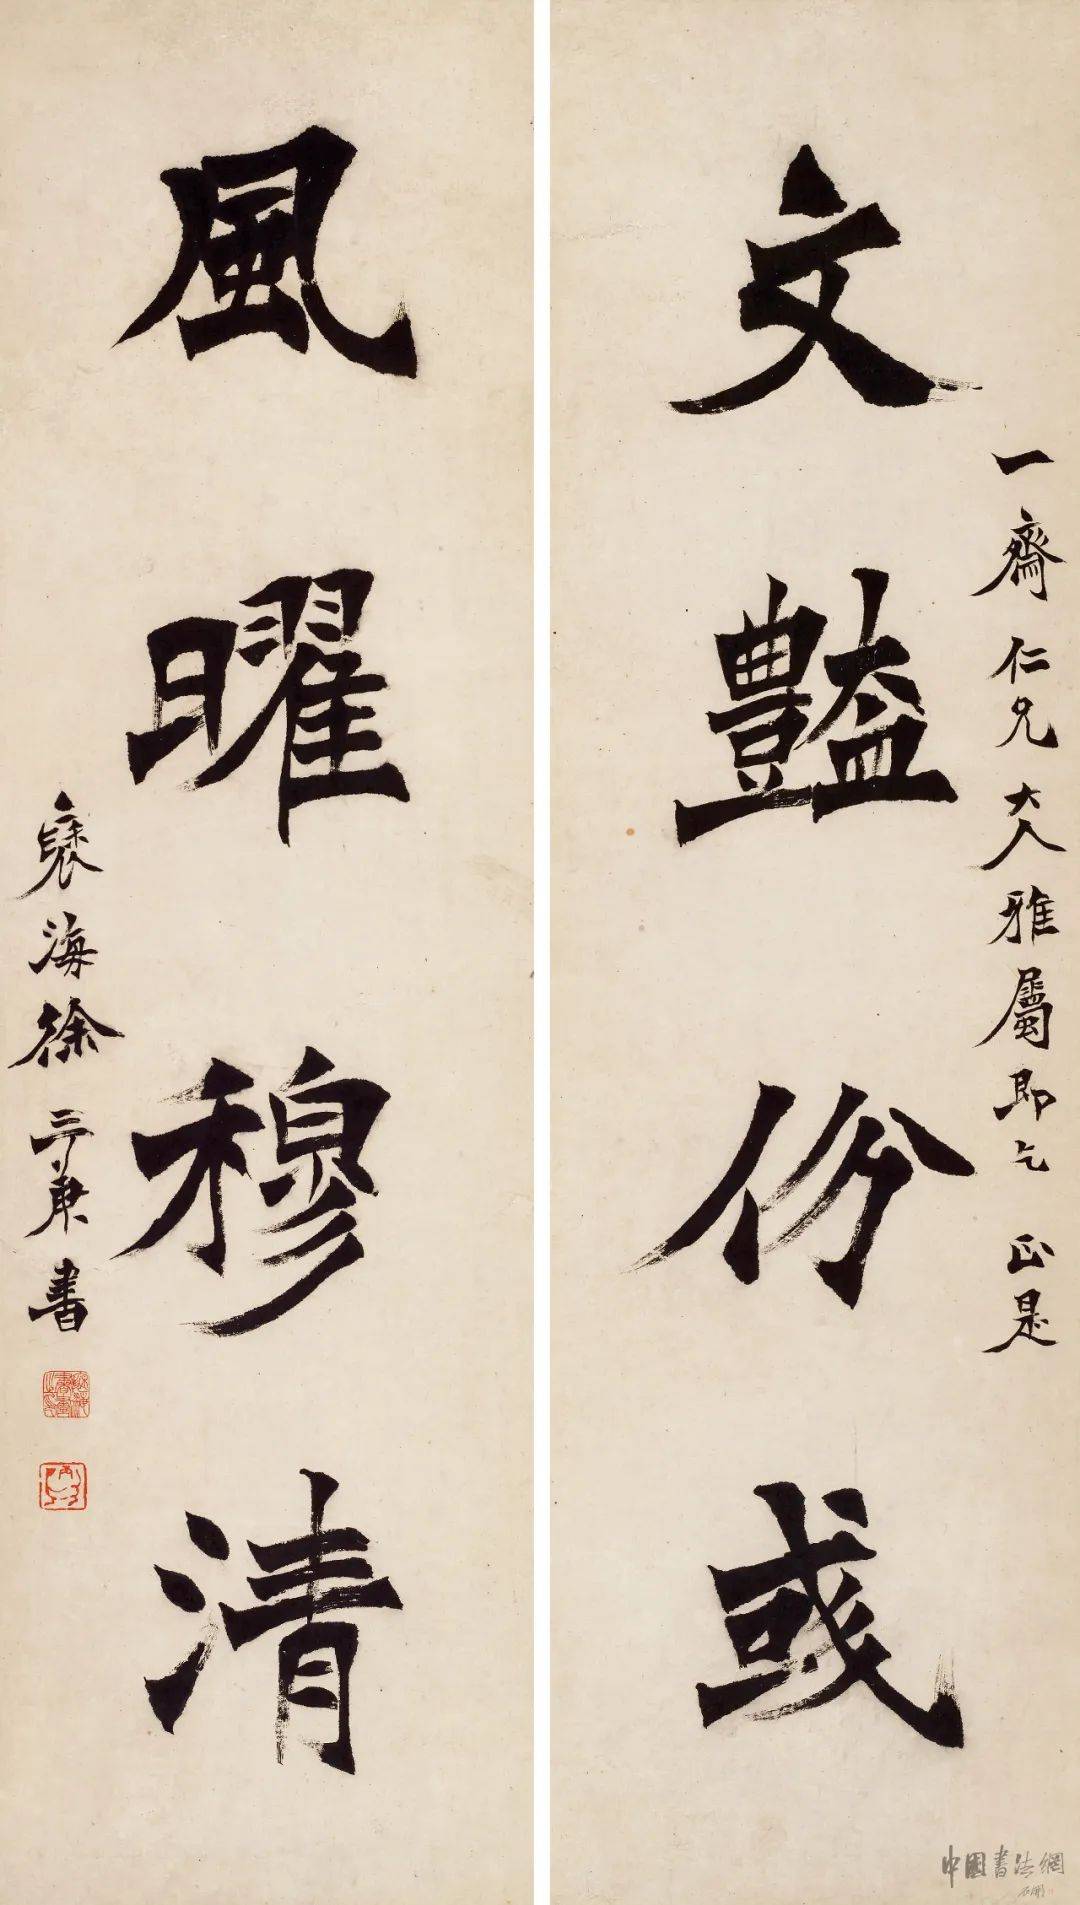 文豔份彧
一齋仁兄大人雅屬即乞 正是
風曜穆清
褎海徐三庚書
中國書法網